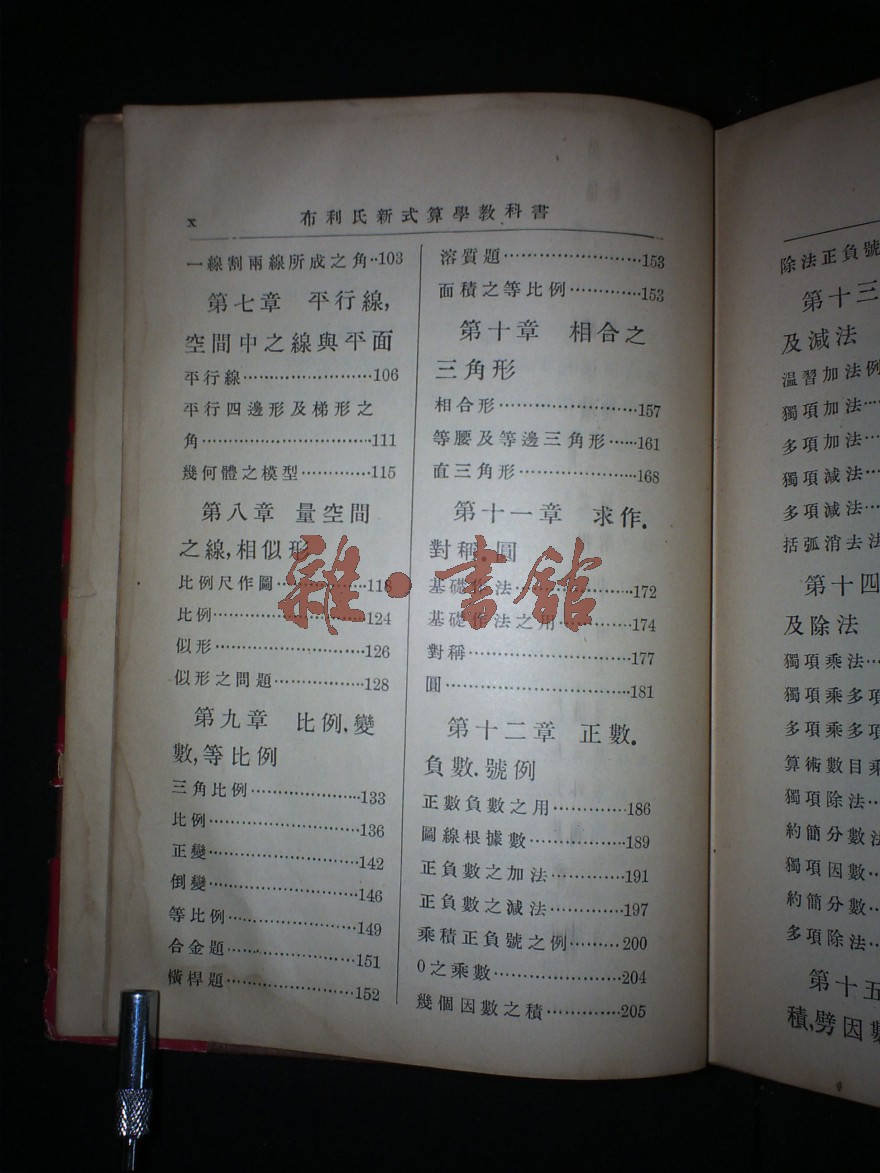 x
布利氏新式算學教科書
一線割兩線所成之角··103
第七章 平行線,
空間中之線與平面
平行線························106
平行四邊形及梯形之
角·······························111
幾何體之模型·············115
第八章 量空間
之線,相似形
比例尺作圖·················118
比例····························124
似形···························126
似形之問題·················128
第九章 比例.變
數,等比例
三角比例····················133
比例····························136
正變····························142
倒變····························146
等比例························149
合金題························151
橫桿題························152
溶質題························153
面積之等比例·············153
第十章 相合之
三角形
相合形························157
等腰及等邊三角形······161
直三角形····················168
第十一章 求作.
對稱.圓
基礎作法····················172
基礎作法之用·············174
對稱····························177
圓·······························181
第十二章 正數.
負數.號例
正數負數之用·············186
圖線根據數·················189
正負數之加法·············191
正負數之減法·············197
乘積正負號之例·········200
0之乘數······················204
幾個因數之積·············205
除法正負號
第十三
及減法
温習加法例
獨項加法···
多項加法···
獨項減法···
多項減法···
括弧消去法
第十四
及除法
獨項乘法···
獨項乘多項
多項乘多項
算術數目乘
獨項除法···
約簡分數法
獨項因數···
約簡分數···
多項除法···
第十五
積,劈因數
雜·書館